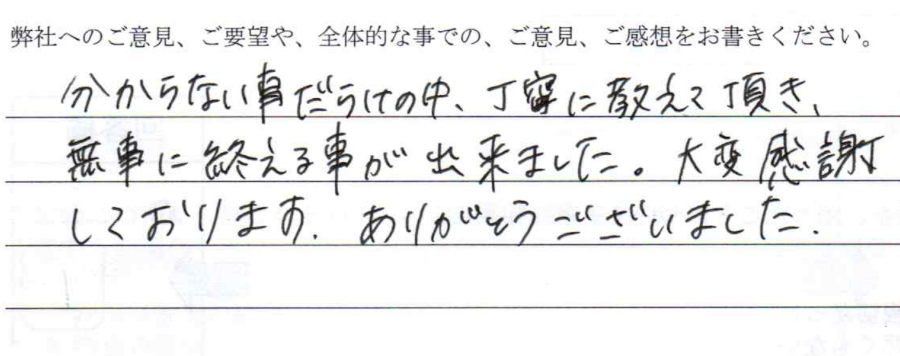 弊社へのご意見、ご要望や、全体的な事での、ご意見、ご感想をお書きください。
分からない事だらけの中、丁寧に教えて頂き、
無事に終える事が出来ました。大変感謝
しております。ありがとうございました。